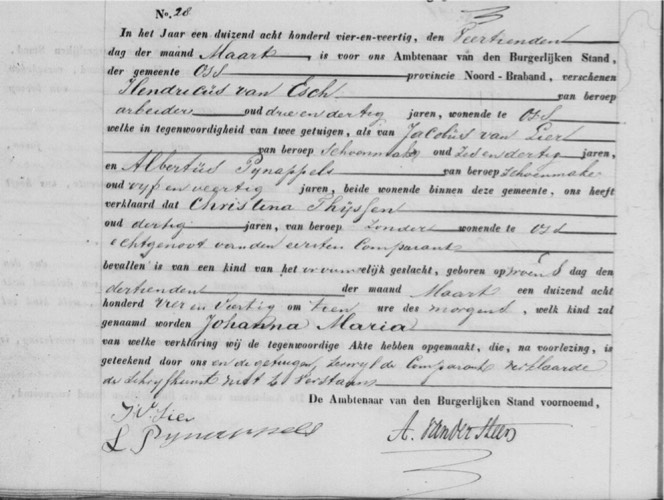 No. 28
In het Jaar een duizend acht honderd vier-en-veertig, den Veertienden
dag der maand Maart, is voor ons Ambtenaar van den Burgerlijken Stand,
der gemeente Oss provincie Noord-Braband, verschenen
Hendricus van Esch van beroep
arbeider oud drie en dertig jaren, wonende te Oss
welke in tegenwoordigheid van twee getuigen, als van Jacobus van Lier
van beroep Schoenmaker oud Zes en dertig jaren,
en Albertus Pynappels van beroep Schoenmake
oud vyf en veertig jaren, beide wonende binnen deze gemeente, ons heeft
verklaard dat Christina Thijssen
oud dertig jaren, van beroep Zonder wonende te Oss
echtgenoot van den eersten Comparant
bevallen is van een kind van het vrouwelijk geslacht, geboren op woensdag den
dertienden der maand Maart een duizend acht
honderd Vier en Veertig om tien ure des morgens, welk kind zal
genaamd worden Johanna Maria
van welke verklaring wij de tegenwoordige Akte hebben opgemaakt, die, na voorlezing, is
geteekend door ons en de getuigen, terwyl de Comparant verklaarde
de Schryfkunst niet te verstaan
De Ambtenaar van den Burgerlijken Stand voornoemd,
JV Lier
Pynappels A. van der Steen